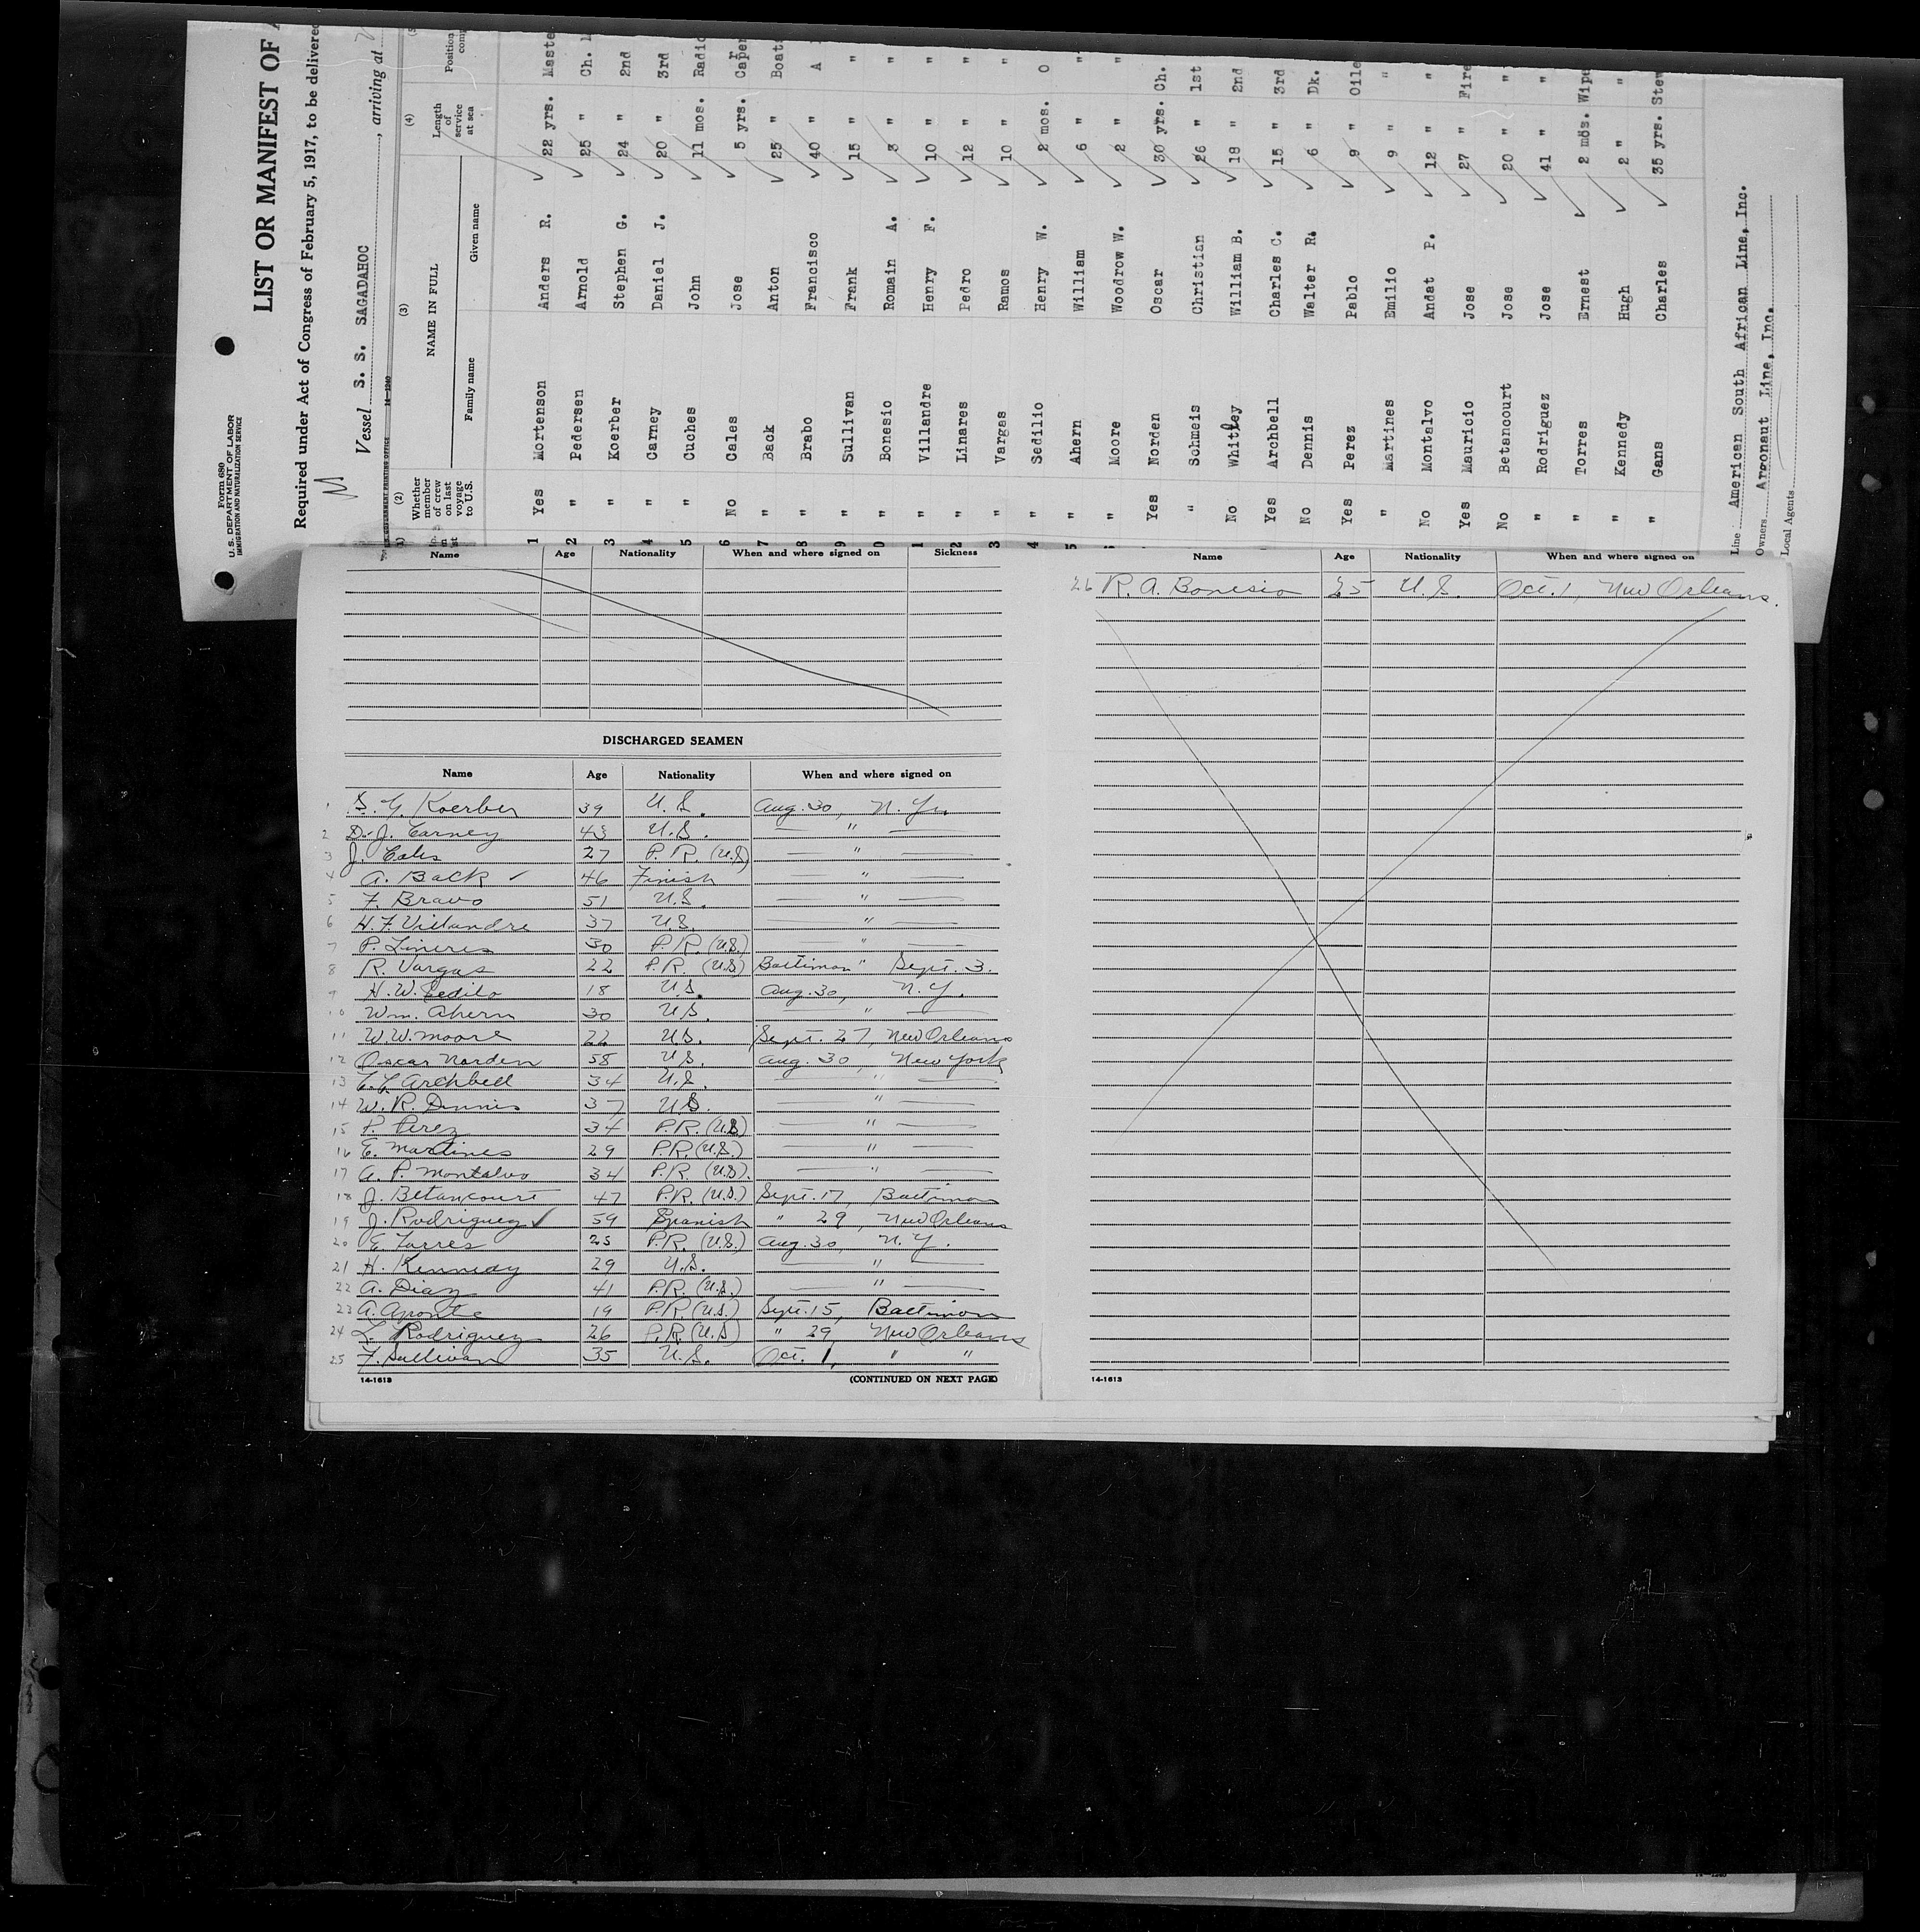 Form 680
U. S. DEPARTMENT OF LABOR
IMMIGRATION AND NATURALIZATION SERVICE
LIST OR MANIFEST OF
Required under Act of Congress of February 5, 1917, to be delivered
Vessel S. S. SAGADAHOC, arriving at
14—1240
(1) (2) (3) (4)
Whether member of crew on last voyage to U.S. NAME IN FULL Length of service at sea Position
Family name Given name
1 Yes Mortenson Anders R. 22 yrs. Maste
2 " Pedersen Arnold 25 " Ch.
3 " Koerber Stephen G. 24 " 2nd
4 " Carney Daniel J. 20 " 3rd
5 " Cuches John 11 mos. Radio
6 No Cales Jose 5 yrs. Carper
7 " Back Anton 25 " Boats
8 " Brabo Francisco 40 " A
9 " Sullivan Frank 15 " "
0 " Bonesio Romain A. 3 " "
1 " Villandre Henry F. 10 " "
2 " Linares Pedro 12 " "
3 " Vargas Ramos 10 " "
4 " Sedilio Henry W. 2 mos. O
5 " Ahern William 6 " "
" Moore Woodrow W. 2 " "
Yes Norden Oscar 30 yrs. Ch.
" Schmeis Christian 26 " 1st
No Whitley William B. 18 " 2nd
Yes Archbell Charles C. 15 " 3rd
No Dennis Walter R. 6 " Dk.
Yes Perez Pablo 9 " Oile
" Martines Emilio 9 " "
No Montalvo Andat P. 12 " "
Yes Mauricio Jose 27 " Fire
No Betancourt Jose 20 " "
" Rodriguez Jose 41 " "
" Torres Ernest 2 mos. Wipe
" Kennedy Hugh 2 " "
" Gans Charles 35 yrs. Stew
Line American South African Line, Inc.
Owners Argonaut Line, Inc.
Local Agents
Name Age Nationality When and where signed on Sickness
DISCHARGED SEAMEN
Name Age Nationality When and where signed on
1 S. G. Koerber 39 U.S. Aug. 30, N. Y.
2 D. J. Carney 43 U.S. "
3 J. Cales 27 P.R. (U.S) "
4 A. Back ✓ 46 Finish "
5 F. Bravo 51 U.S. "
6 H. F. Villandre 37 U.S. "
7 P. Lineres 30 P.R. (U.S.) "
8 R. Vargas 22 P.R. (U.S) Baltimore " Sept. 3.
9 H. W. Sedilo 18 U.S. Aug. 30, N.Y.
10 Wm. Ahern 30 U.S. "
11 W. W. Moore 22 U.S. Sept. 27, New Orleans
12 Oscar Norden 58 U.S. Aug. 30, New York
13 C. C. Archbell 34 U.S. "
14 W. R. Dennis 37 U.S. "
15 P. Perez 34 P.R. (U.S) "
16 E. Martines 29 P.R. (U.S.) "
17 A. P. Montalvo 34 P.R. (U.S). "
18 J. Betancourt 47 P.R. (U.S.) Sept. 17, Baltimore
19 J. Rodriguez ✓ 59 Spanish " 29, New Orleans
20 E. Torres 25 P.R. (U.S.) Aug. 30, N.Y.
21 H. Kennedy 29 U.S. "
22 A. Diaz 41 P.R. (U.S.) "
23 A. Aponte 19 P.R. (U.S.) Sept. 15, Baltimore
24 L. Rodriguez 26 P.R. (U.S) " 29, New Orleans
25 F. Sullivan 35 U.S. Oct. 1, " "
14-1613 (CONTINUED ON NEXT PAGE)
Name Age Nationality When and where signed on
26 R. A. Bonesio 25 U.S. Oct. 1, New Orleans.
14-1613